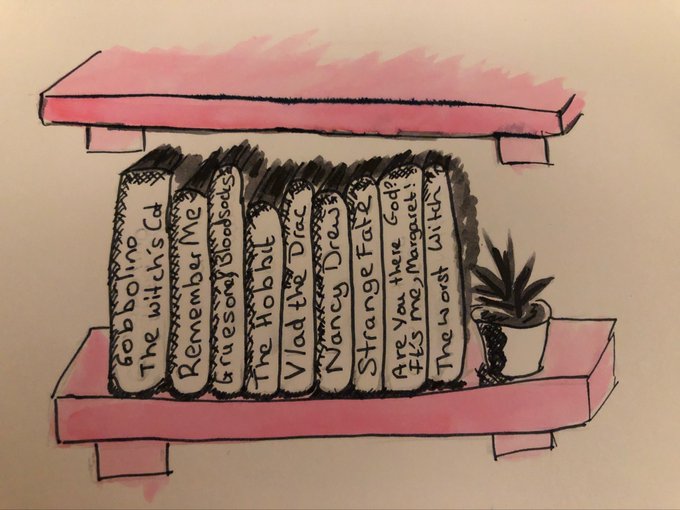 Gobbolino
The Witch's Cat
Remember Me
Gruesome & Bloodsocks!
The Hobbit
Vlad the Drac
Nancy Drew
Strange Fate
Are You there God?
It's me, Margaret!
The Worst Witch